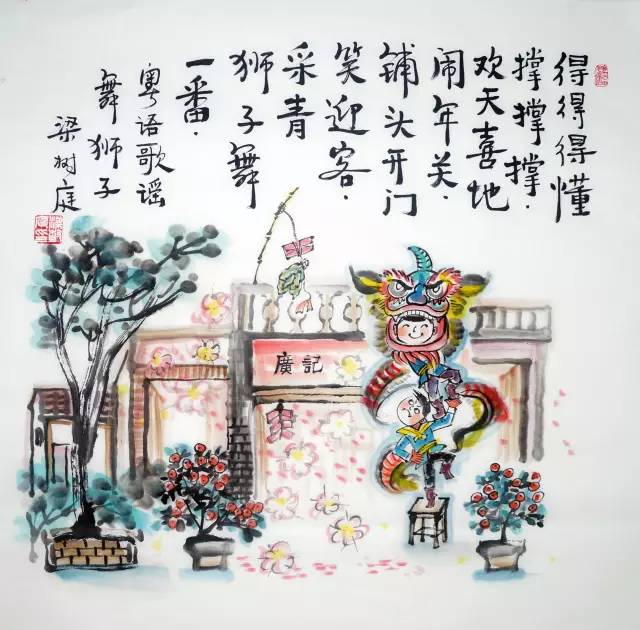 得得得懂
撑撑撑．
欢天喜地
闹年关．
铺头开门
笑迎客．
采青
狮子舞
一番．
粤语歌谣
舞狮子
梁树庭
廣記